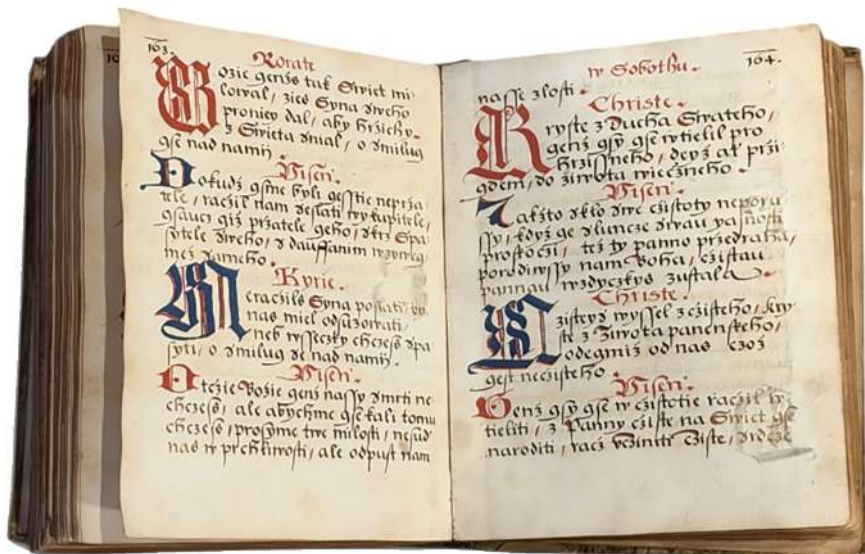 163.
Rorate
Bozie genžs tak Swiet mi-
lowal, zies Syna sweho
proniey dal, aby hržichy
z Swieta sňial, o smilug
gse nad namij
Piseň.
Dokudž gsme byli gesstie neprža
tele, raczil nam zeslati wykupitele,
gsauce giž pržatele geho, skrz Spa
sytele sweho, s dauffanim wzywey
mež sameho.
Kyrie.
Neraczils Syna poslati, by
nas miel odsuzowati,
neb wssecky chczess spa
syti, o smilug se nad namij.
Pisen.
Otczie Bozie genž nassy smrti ne
chczess, ale abychme gse kali tomu
chczess, prosyme twe milosti, nesuď
nas w prchliwosti, ale odpust nam
w Sobothu.
164.
nasse zlosti.
Christe.
Kryste z Ducha Swateho,
genž gsy gse wtielil pro
hrzissneho, deyž ať przi-
gdem, do žiwota wieczneho.
Pisen.
Jakžto sklo swe czistoty neporu
ssy, když ge slunce srdau yasnosti
proskoczi, též ty panno przedraha,
porodiwssy nam Boha, czistau
pannau wzdyczkys zustala.
Christe.
Nzisteyd wyssel z czisteho, Kry
ste z Žiwota panenskeho,
odegmiž od nas czož
gest neczisteho
Pisen.
Genž gsy gse w czistotie raczil w-
tieliti, z Panny cziste na Swiet gse
naroditi, racz vcziniti cziste, srdcze